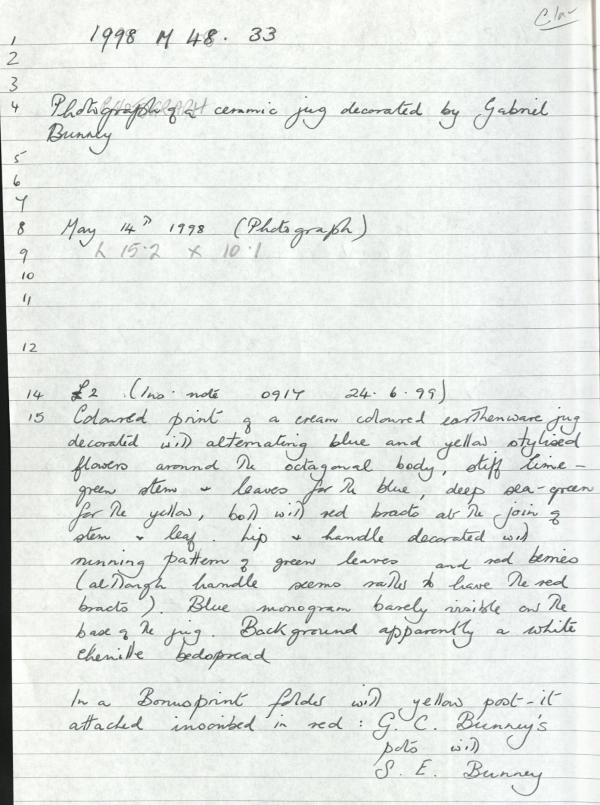 Clar
1 1998 M 48. 33
2
3
4 Photograph of a ceramic jug decorated by Gabriel
Bunney
5
6
7
8 May 14th 1998 (Photograph)
9 L 15.2 x 10.1
10
11
12
14 £2 (Ins. note 0917 24.6.99)
15 Coloured print of a cream coloured earthenware jug
decorated with alternating blue and yellow stylised
flowers around the octagonal body, stiff lime-
green stem & leaves for the blue, deep sea-green
for the yellow, both with red bracts at the join of
stem & leaf. Lip & handle decorated with
running pattern of green leaves and red berries
(although handle seems rather to have the red
bracts). Blue monogram barely visible on the
base of the jug. Background apparently a white
chenille bedspread
In a Bonusprint folder with yellow post-it
attached inscribed in red: G. C. Bunney's
pots with
S. E. Bunney